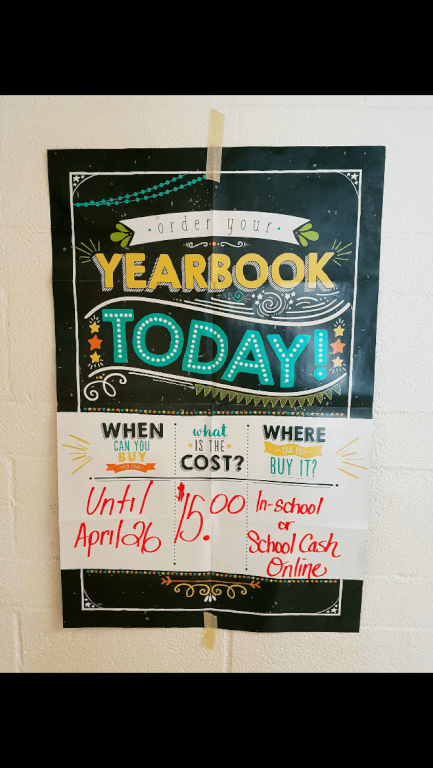 order your
YEARBOOK
TODAY!
WHEN
CAN YOU
BUY
Until
April 26
what
IS THE
COST?
$15.00
WHERE
CAN YOU
BUY IT?
In-school
or
School Cash
Online